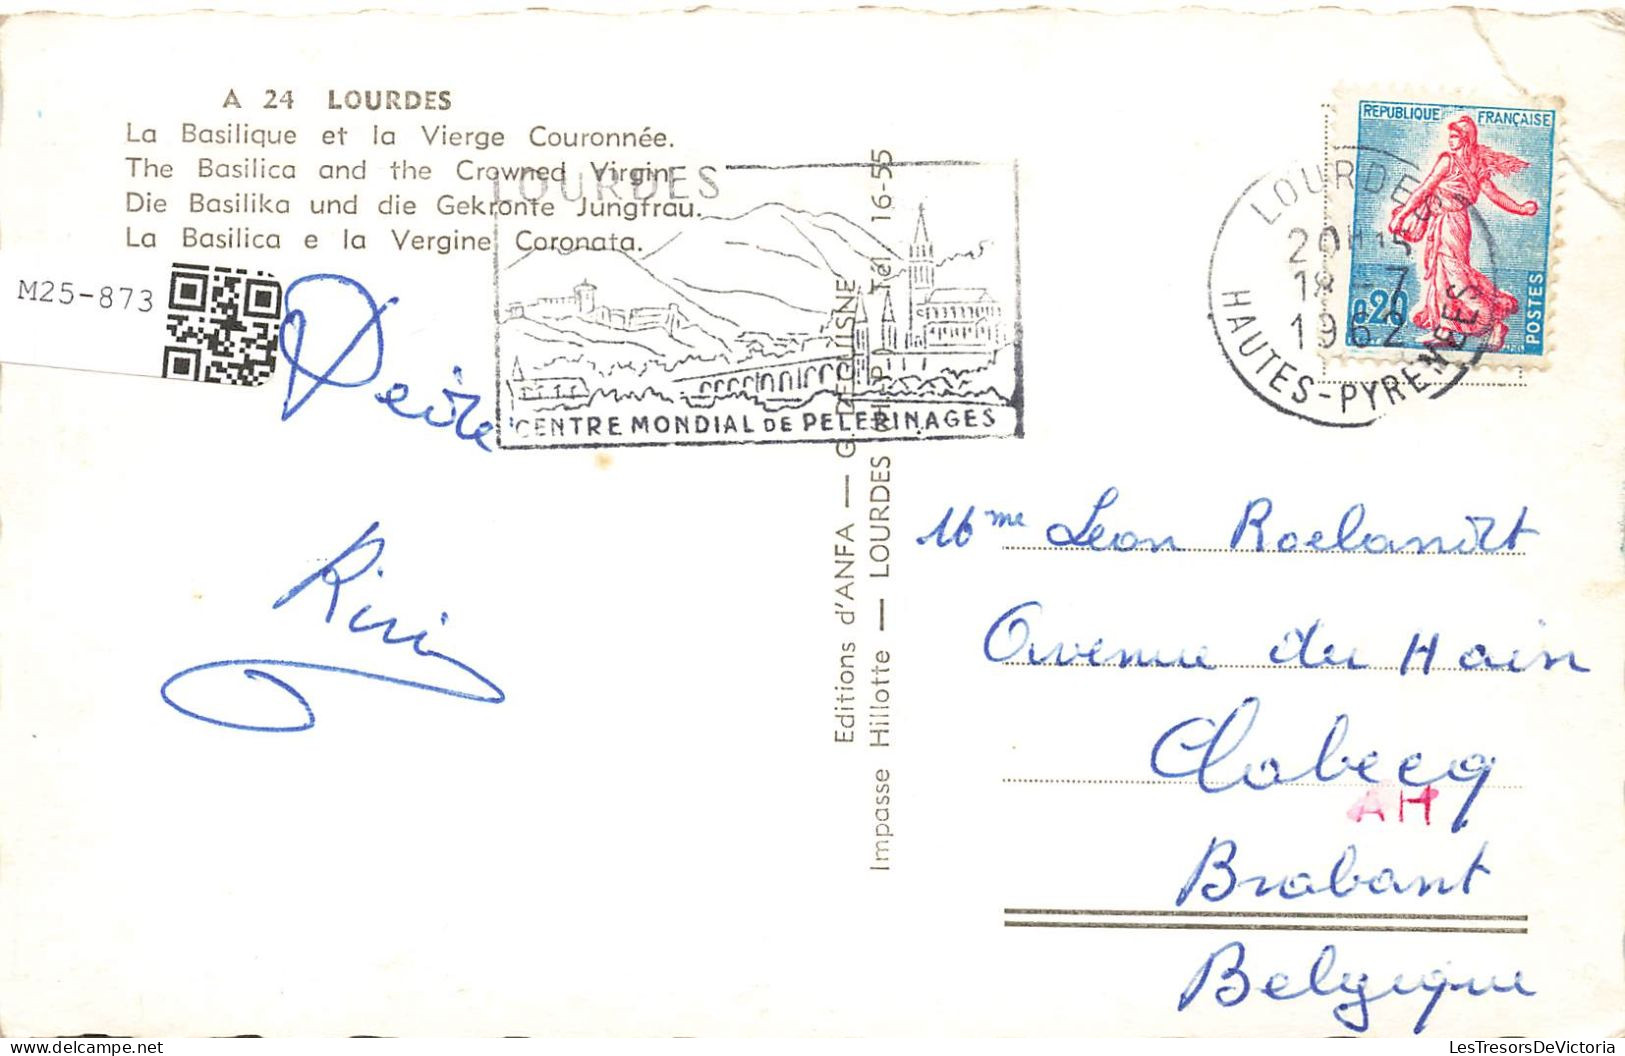 A 24 LOURDES
La Basilique et la Vierge Couronnée.
The Basilica and the Crowned Virgin.
Die Basilika und die Gekronte Jungfrau.
La Basilica e la Vergine Coronata.
M25-873
LOURDES
CENTRE MONDIAL DE PELERINAGES
REPUBLIQUE FRANÇAISE
0,20
POSTES
LOURDES
20H15
18-7
1962
HAUTES-PYRENEES
Riri
Editions d'ANFA — G. DEGUISNE
Impasse Hillotte — LOURDES Tél. 16-55
Mme Leon Roelandt
Avenue du Hain
Clabecq
AH
Brabant
Belgique
LesTresorsDeVictoria